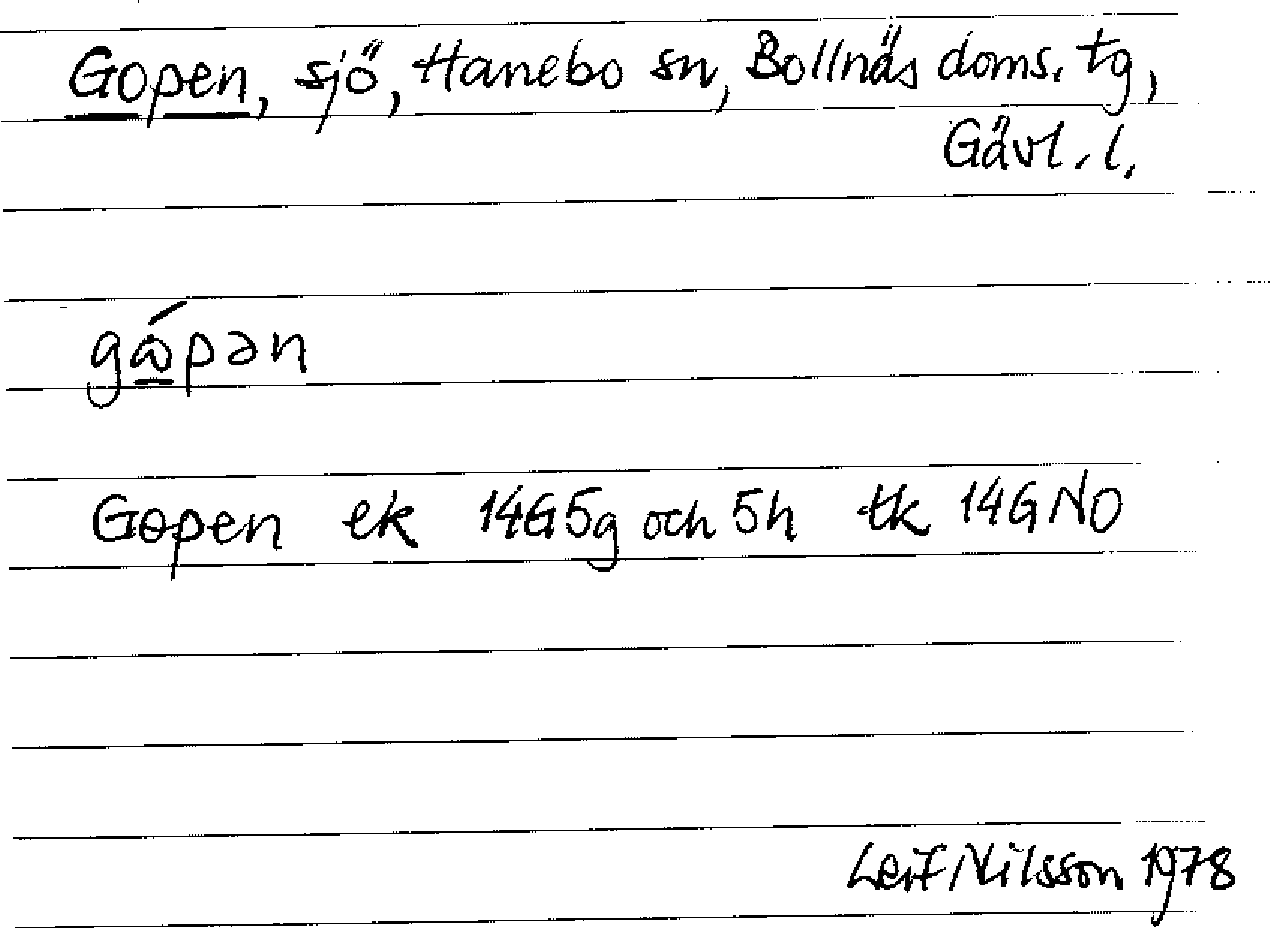 Gopen, sjö, Hanebo sn, Bollnäs doms. tg,
Gävl. l.
gώ̲pən
Gopen ek 14G5g och 5h tk 14GNO
Leif Nilsson 1978